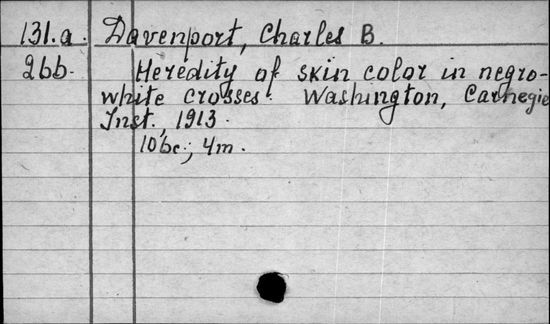 131.a. Davenport, Charles B.
266. Heredity of skin color in negro-
white crosses. Washington, Carnegie
Inst., 1913.
106c.; 4m.